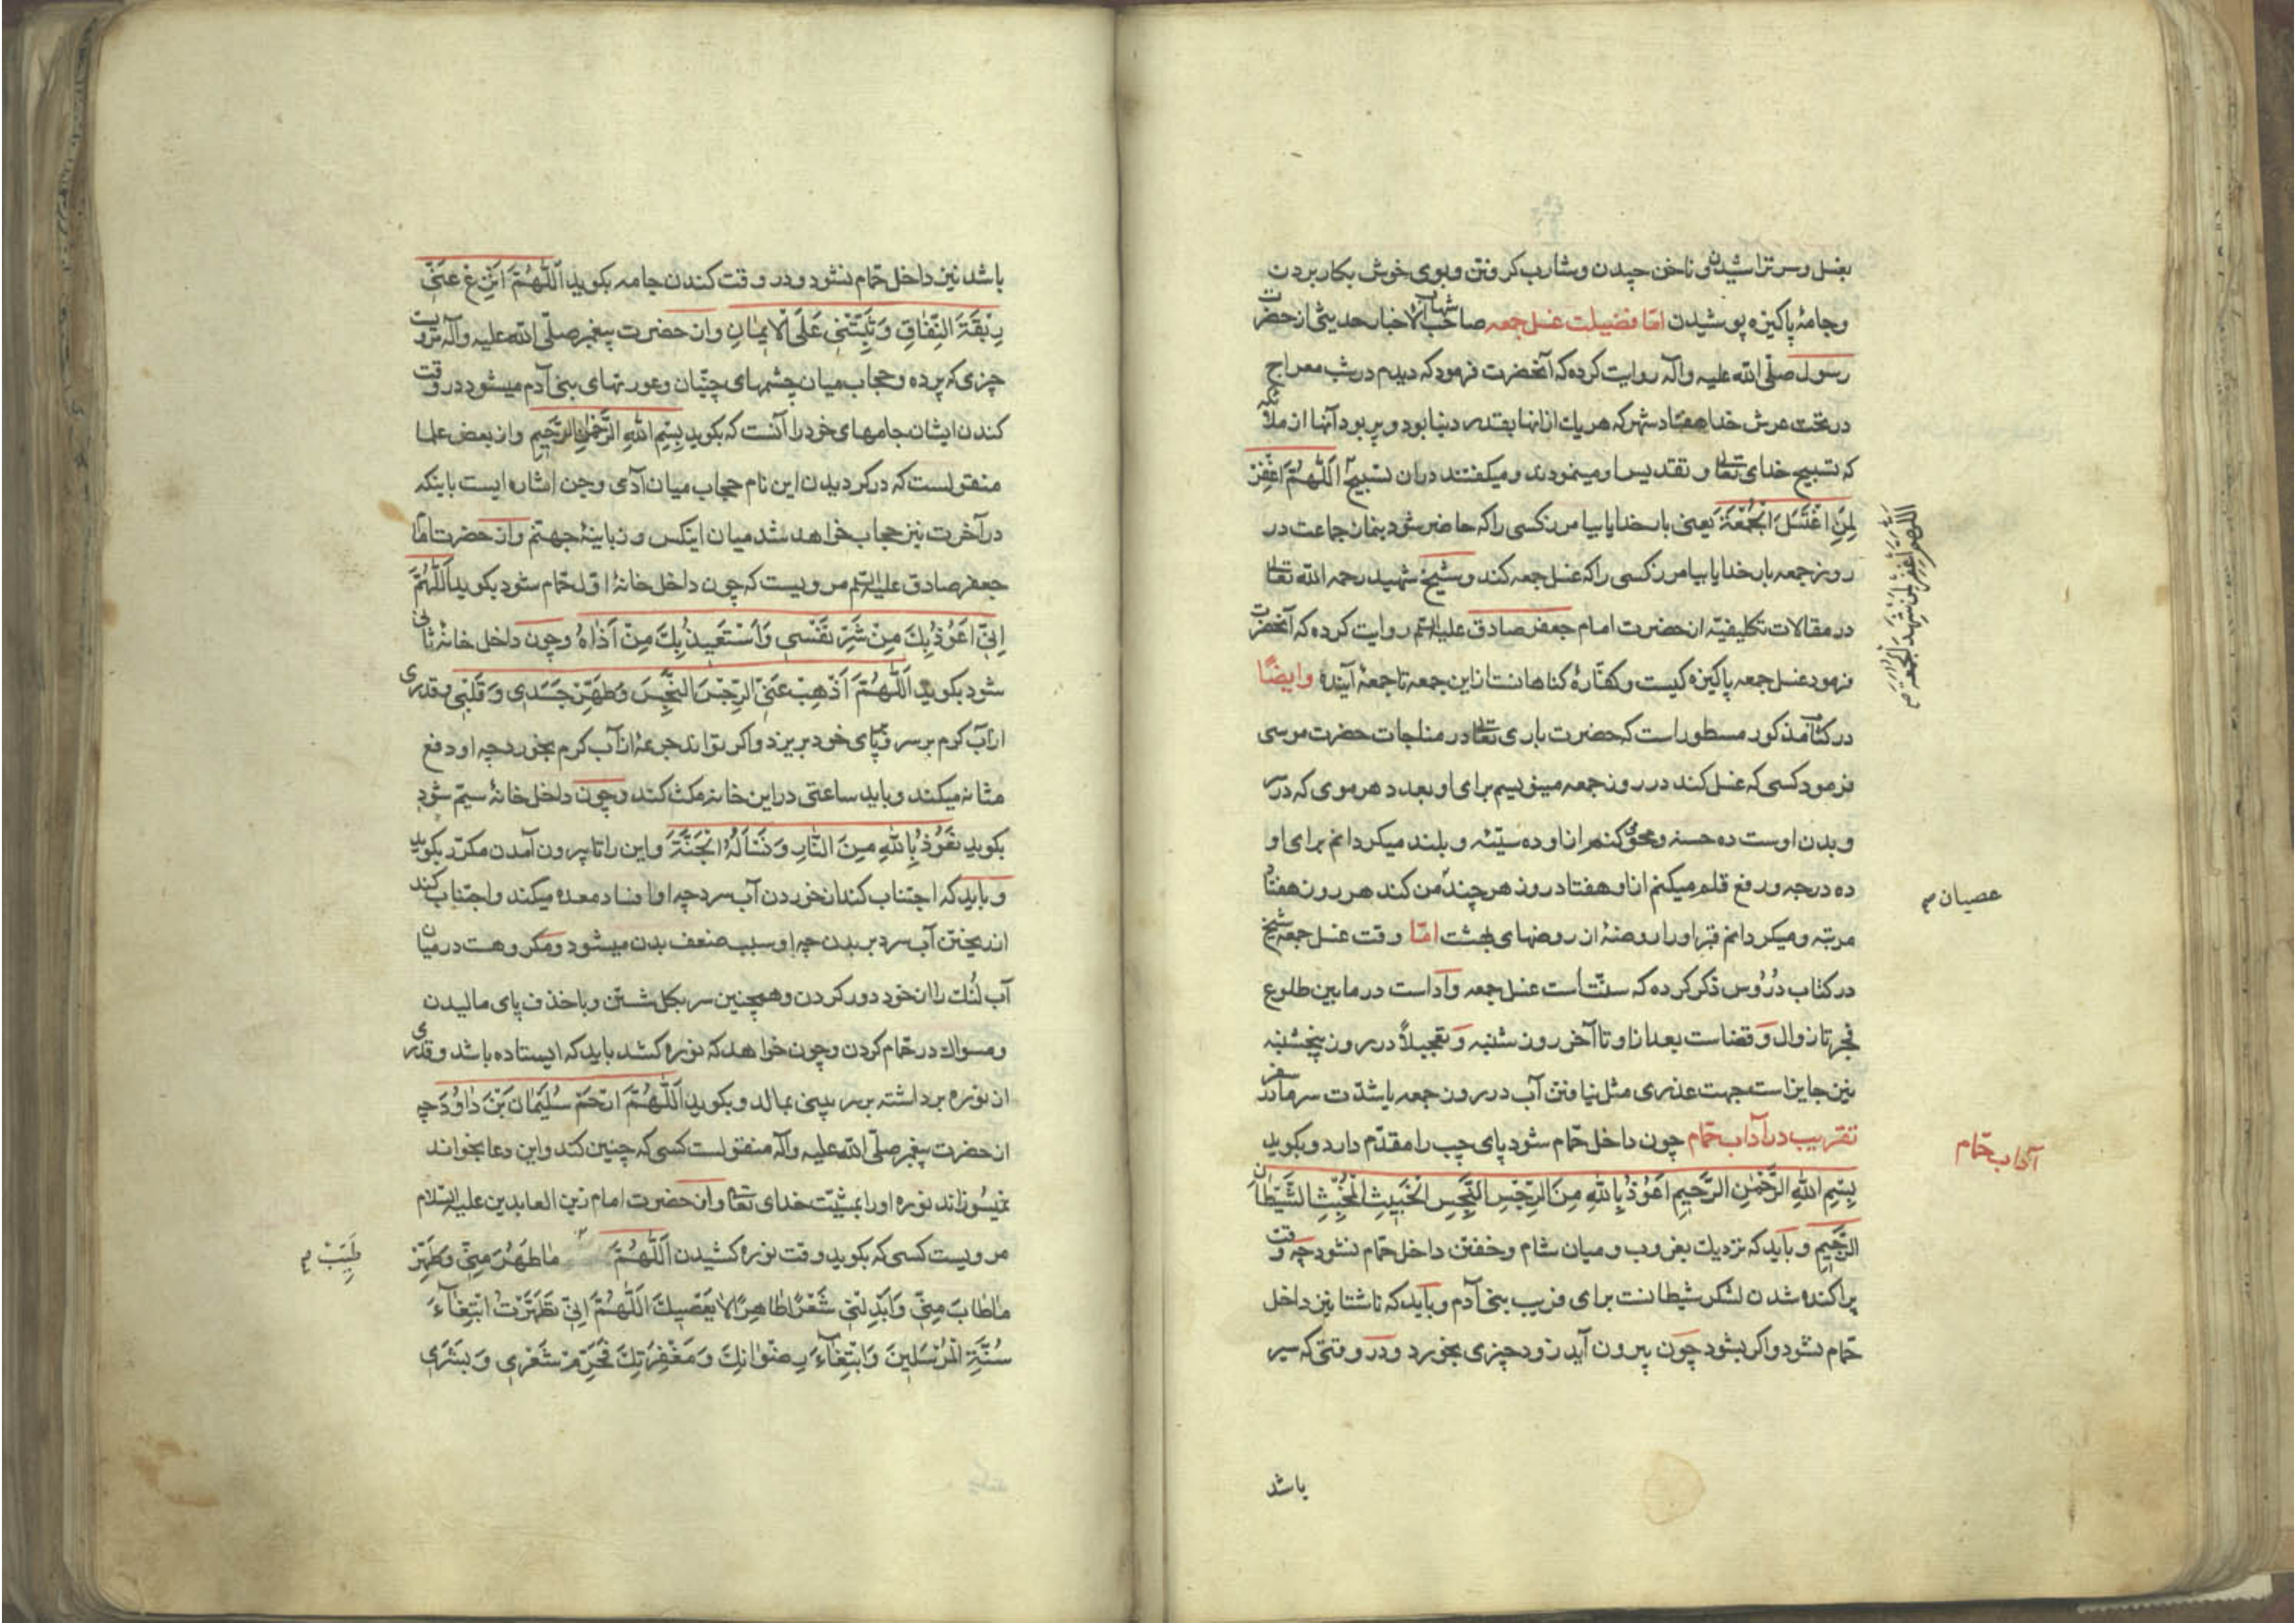 بغسل و سر تراشیدن و ناخن چیدن و شارب کرفتن و بوی خوش بکار بردن
و جامۀ پاکیزه پوشیدن امّا فضیلت غسل جمعه صاحب شهاب الاخبار حدیثی از حضرت
رسول صلّی الله علیه وآله روایت کرده که آنحضرت فرمود که دیدم در شب معراج
در تحت عرش خدا هفتاد شهر که هر یك از انها بقدر دنیا بود و پر بود آنها از ملائکه
که تسبیح خدای تعالی و تقدیس او مینمودند و میکفتند در ان تسبیح اَللّٰهُمَّ اغْفِرْ
لِمَنِ اغْتَسَلَ الْجُمْعَةَ یعنی بار خدایا بیامرز کسی را که حاضر شود بنماز جماعت در
روز جمعه بار خدایا بیامرز کسی را که غسل جمعه کند و شیخ شهید رحمه الله تعالی
در مقالات تکلیفیّه از حضرت امام جعفر صادق علیه السّلم روایت کرده که آنحضرت
فرمود غسل جمعه پاکیزه کیست و کفّارۀ کناهانست از این جمعه تا جمعۀ آینده وایضًا
در کتاب مذکور مسطور است که حضرت باری تعالی در مناجات حضرت موسی
فرمود کسی که غسل کند در روز جمعه مینویسم برای او بعدد هر موی که در سر
و بدن اوست ده حسنه و محو کنم از او ده سیّئه و بلند میکردانم برای او
ده درجه و رفع قلم میکنم از او هفتاد روز هر چند من کند هر روز هفتاد
مرتبه و میکردانم قبر او را روضۀ از روضهای بهشت امّا وقت غسل جمعه شیخ
در کتاب دُرُوس ذکر کرده که سنّت است غسل جمعه و ادا است در مابین طلوع
فجر تا زوال و قضاست بعد از او تا آخر روز شنبه و تعجیلاً در روز پنجشنبه
نیز جایز است جهت عذری مثل نیافتن آب در روز جمعه یا شدّت سرما
تقریب در آداب حمّام چون داخل حمّام شود پای چپ را مقدّم دارد و بکوید
بِسْمِ اللهِ الرَّحْمٰنِ الرَّحیمِ اَعُوذُ بِاللهِ مِنَ الرِّجْسِ النَّجِسِ الْخَبیثِ الْمُخْبِثِ الشَّیْطانِ
الرَّجیمِ و باید که نزدیك بغروب و میان شام و خفتن داخل حمّام نشود چه وقت
پراکنده شدن لشکر شیطانست برای فریب بنی آدم و باید که ناشتا نیز داخل
حمّام نشود و اکر بشود چون بیرون آید زود چیزی بخورد و در وقتی که سیر
باشد
اللّٰهم اغفر لمن شهد الجمعه
عصیان صح
آداب حمّام
باشد نیز داخل حمّام نشود و در وقت کندن جامه بکوید اَللّٰهُمَّ انْزِعْ عَنّی
رِبْقَةَ النِّفٰاقِ وَ ثَبِّتْنی عَلَی الْایمٰانِ و از حضرت پیغمبر صلّی الله علیه وآله مرویست
چیزی که پرده و حجاب میان چشمهای جنّیان و عورتهای بنی آدم میشود در وقت
کندن ایشان جامهای خود را آنست که بکوید بِسْمِ اللهِ الرَّحْمٰنِ الرَّحیمِ و از بعض علما
منقولست که در کردیدن این نام حجاب میان آدمی و جن اشاره ایست باینکه
در آخرت نیز حجاب خواهد شد میان اینکس و زبانیۀ جهنّم و از حضرت امام
جعفر صادق علیه السّلم مرویست که چون داخل خانۀ اوّل حمّام شود بکوید اَللّٰهُمَّ
اِنّی اَعُوذُ بِكَ مِنْ شَرِّ نَفْسی وَ اَسْتَعیذُ بِكَ مِنْ اَذٰاهُ و چون داخل خانۀ ثانی
شود بکوید اَللّٰهُمَّ اَذْهِبْ عَنّی الرِّجْسَ النَّجِسَ وَ طَهِّرْ جَسَدی وَ قَلْبی و قدری
از آب کرم بر سر و پای خود بریزد و اکر تواند جرعۀ از آب کرم بخورد چه او دفع
مثانه میکند و باید ساعتی در این خانه مکث کند و چون داخل خانۀ سیّم شود
بکوید نَعُوذُ بِاللهِ مِنَ النّٰارِ وَ نَسْاَلُهُ الْجَنَّةَ و این را تا بیرون آمدن مکرّر بکوید
و باید که اجتناب کند از خوردن آب سرد چه او افساد معده میکند و اجتناب کند
از ریختن آب سرد بر بدن چه او سبب ضعف بدن میشود و مکروهست در میان
آب لُنك را از خود دور کردن و همچنین سر بکل شستن و با خذف پای مالیدن
و مسواك در حمّام کردن و چون خواهد که نوره کشد باید که ایستاده باشد و قدری
از نوره برداشته بر سر بینی بمالد و بکوید اَللّٰهُمَّ ارْحَمْ سُلَیْمٰانَ بْنَ دٰاوُدَ چه
از حضرت پیغمبر صلّی الله علیه وآله منقولست کسی که چنین کند و این دعا بخواند
نمیسوزاند نوره او را بمشیّت خدای تعالی و از حضرت امام زین العابدین علیه السّلام
مرویست کسی که بکوید وقت نوره کشیدن اَللّٰهُمَّ مٰا طَهُرَ مِنّی وَ طَهِّرْ
مٰا طابَ مِنّی وَ اَبْدِلْنی شَعْرًا طٰاهِرًا لاٰ یَعْصیكَ اَللّٰهُمَّ اِنّی تَطَهَّرْتُ ابْتِغٰآءَ
سُنَّةِ الْمُرْسَلینَ وَ ابْتِغٰآءَ رِضْوٰانِكَ وَ مَغْفِرَتِكَ فَحَرِّمْ شَعْری وَ بَشَری
طَیِّبْ صح